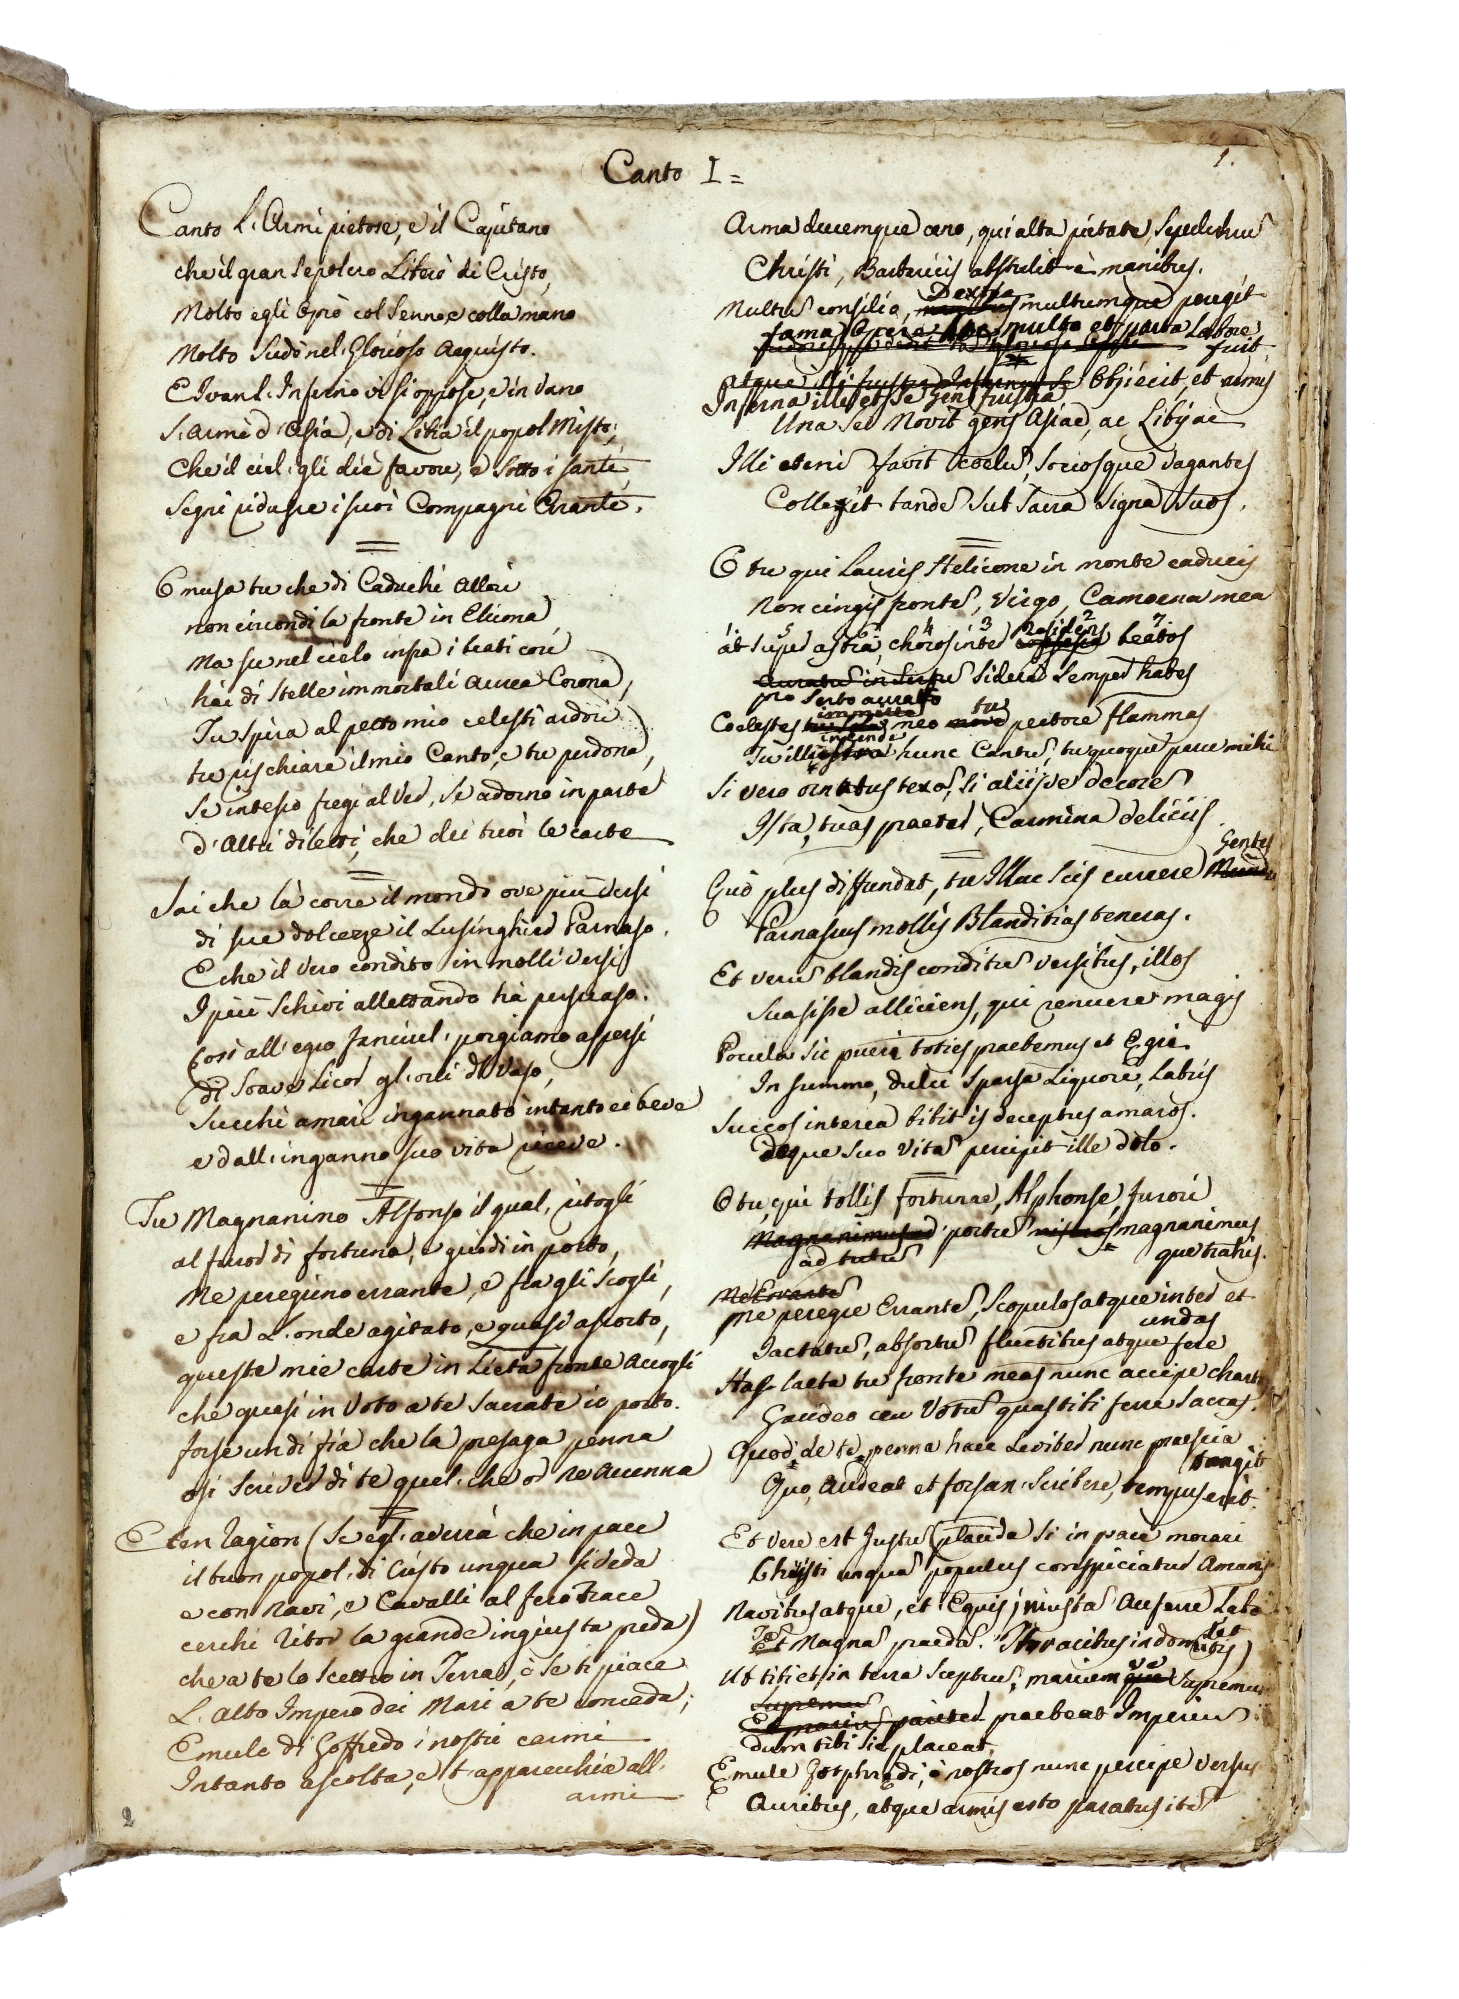 1.
Canto I =
Canto l'Armi pietose, e il Capitano
che il gran Sepolcro Liberò di Cristo,
Molto egli oprò col Senno, e colla mano
Molto Sudò nel Glorioso Acquisto.
E Invan l'Inferno vi Si oppose, e in Vano
S'armò d'Asia, e di Libia il popol Misto;
Che il ciel gli diè favore, e Sotto i Santi
Segni ridusse i suoi Compagni Erranti.
O musa tu che di Caduchi Allori
non circondi la fronte in Elicona
Ma su nel cielo infra i beati cori
hai di Stelle immortali Aurea Corona,
Tu Spira al petto mio celesti ardori
tu rischiara il mio Canto, e tu perdona,
Se intesso fregi al Ver, Se adorno in parte
d'Altri diletti, che dei tuoi le carte
Sai che là corre il mondo ove più versi
di sue dolcezze il Lusinghier Parnaso.
E che il Vero condito in molli Versi
I più Schivi allettando hà persuaso.
Così all'egro fanciul porgiamo aspersi
di Soave Licor gl'orli del Vaso,
Succhi amari ingannato intanto ei beve
e dall'inganno suo vita riceve.
Tu Magnanimo Alfonso il qual ritogli
al furor di fortuna, e guidi in porto,
Me peregrino errante, e fra gli Scogli,
e fra L'onde agitato, e quasi assorto,
queste mie carte in Lieta fronte Accogli
che quasi in Voto a te Sacrate io porto.
forse un dì fia che la presaga penna
osi Scriver di te quel che or ne Accenna
E ben ragion (Se egl'averrà che in pace
il buon popol di Cristo unqua Si veda
e con Navi, e Cavalli al fero Trace
cerchi Ritor la grande ingiusta preda)
che a te lo Scettro in Terra, o Se ti piace
L'alto Impero dei Mari a te conceda;
Emulo di Goffredo i nostri carmi
Intanto ascolta, e t'apparecchia all'
armi
2
Arma ducemque cano, qui alta pietate Sepulchrum
Christi, Barbaricis abstulit è manibus.
Dextra
Multum consilio, multumque peregit
fama multo et parta Labore
fuit.
Objiecit, et armis
Inferna ille et Se Gens frustra
Una Se Movit gens Asiae, ac Libyae
Illi etenim favit coelum, Sociosque vagantes
Collegit tandem Sub Sacra Signa Suos.
O tu qui Lauris Helicone in monte caducis
Non cingis frontem, Virgo, Camoena mea
1 5 6 4 3 Residens 2 7
at Super astra, choros inter beatos
Sidera Semper habes
pro Serto aurato
immitte tu
Coelestes meo pectore flammas
intende
Tu hunc Cantum, tu quoque parce mihi
Si vero ornatus texo, Si aliisve decorem
Ista, tuas praeter, Carmina deliciis.
Gentes
Quo plus diffundat, tu Illuc Scis currere
Parnassus mollis Blanditias teneras.
Et verum blandis conditum versibus, illos
Suasisse alliciens, qui renuere magis
Pocula Sic pueri toties praebemus et Egri
In summo, dulci Sparsa Liquore, Labris
Succos interea bibit is deceptus amaros.
deque Suo Vitam percipit ille dolo.
O tu, qui tollis fortunae, Alphonse, furori
portum magnanimus
ad tutum que trahis.
Me peregre Errantem, Scopulos atque inter et
undas
Jactatum, absortum fluctibus atque fere
Has laeta tu fronte meas nunc accipe chartas
Gaudeo ceu Votum quas tibi ferre Sacras.
Quod de te penna haec Leviter nunc praescia
tangit
Quo, Audeat et forsan Scribere, tempus erit.
Et vere est Justum (placida Si in pace morari
Christi unquam populus conspiciatur Amans
Navibus atque, et Equis injustam Auferre Labo-
Et Magnam praedam. Thracibus indomitis)
Ut tibi et in terra Sceptrum, marium ve Supremum
praebeat Imperium
dum tibi Sic placeat.
Emule Gotphredi, ò nostros nunc percipe Versus
Auribus, atque armis esto paratus item